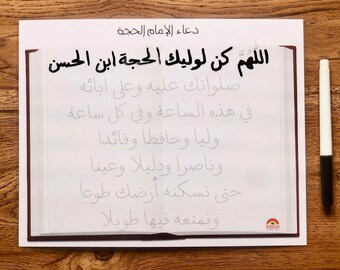 دعاء الإمام الحجة
اللّهُمَّ كن لوليك الحجة ابن الحسن
صلواتك عليه وعلى ابائه
في هذه الساعة وفي كل ساعة
وليا وحافظا وقائدا
وناصرا ودليلا وعينا
حتى تسكنه أرضك طوعا
وتمتعه فيها طويلا